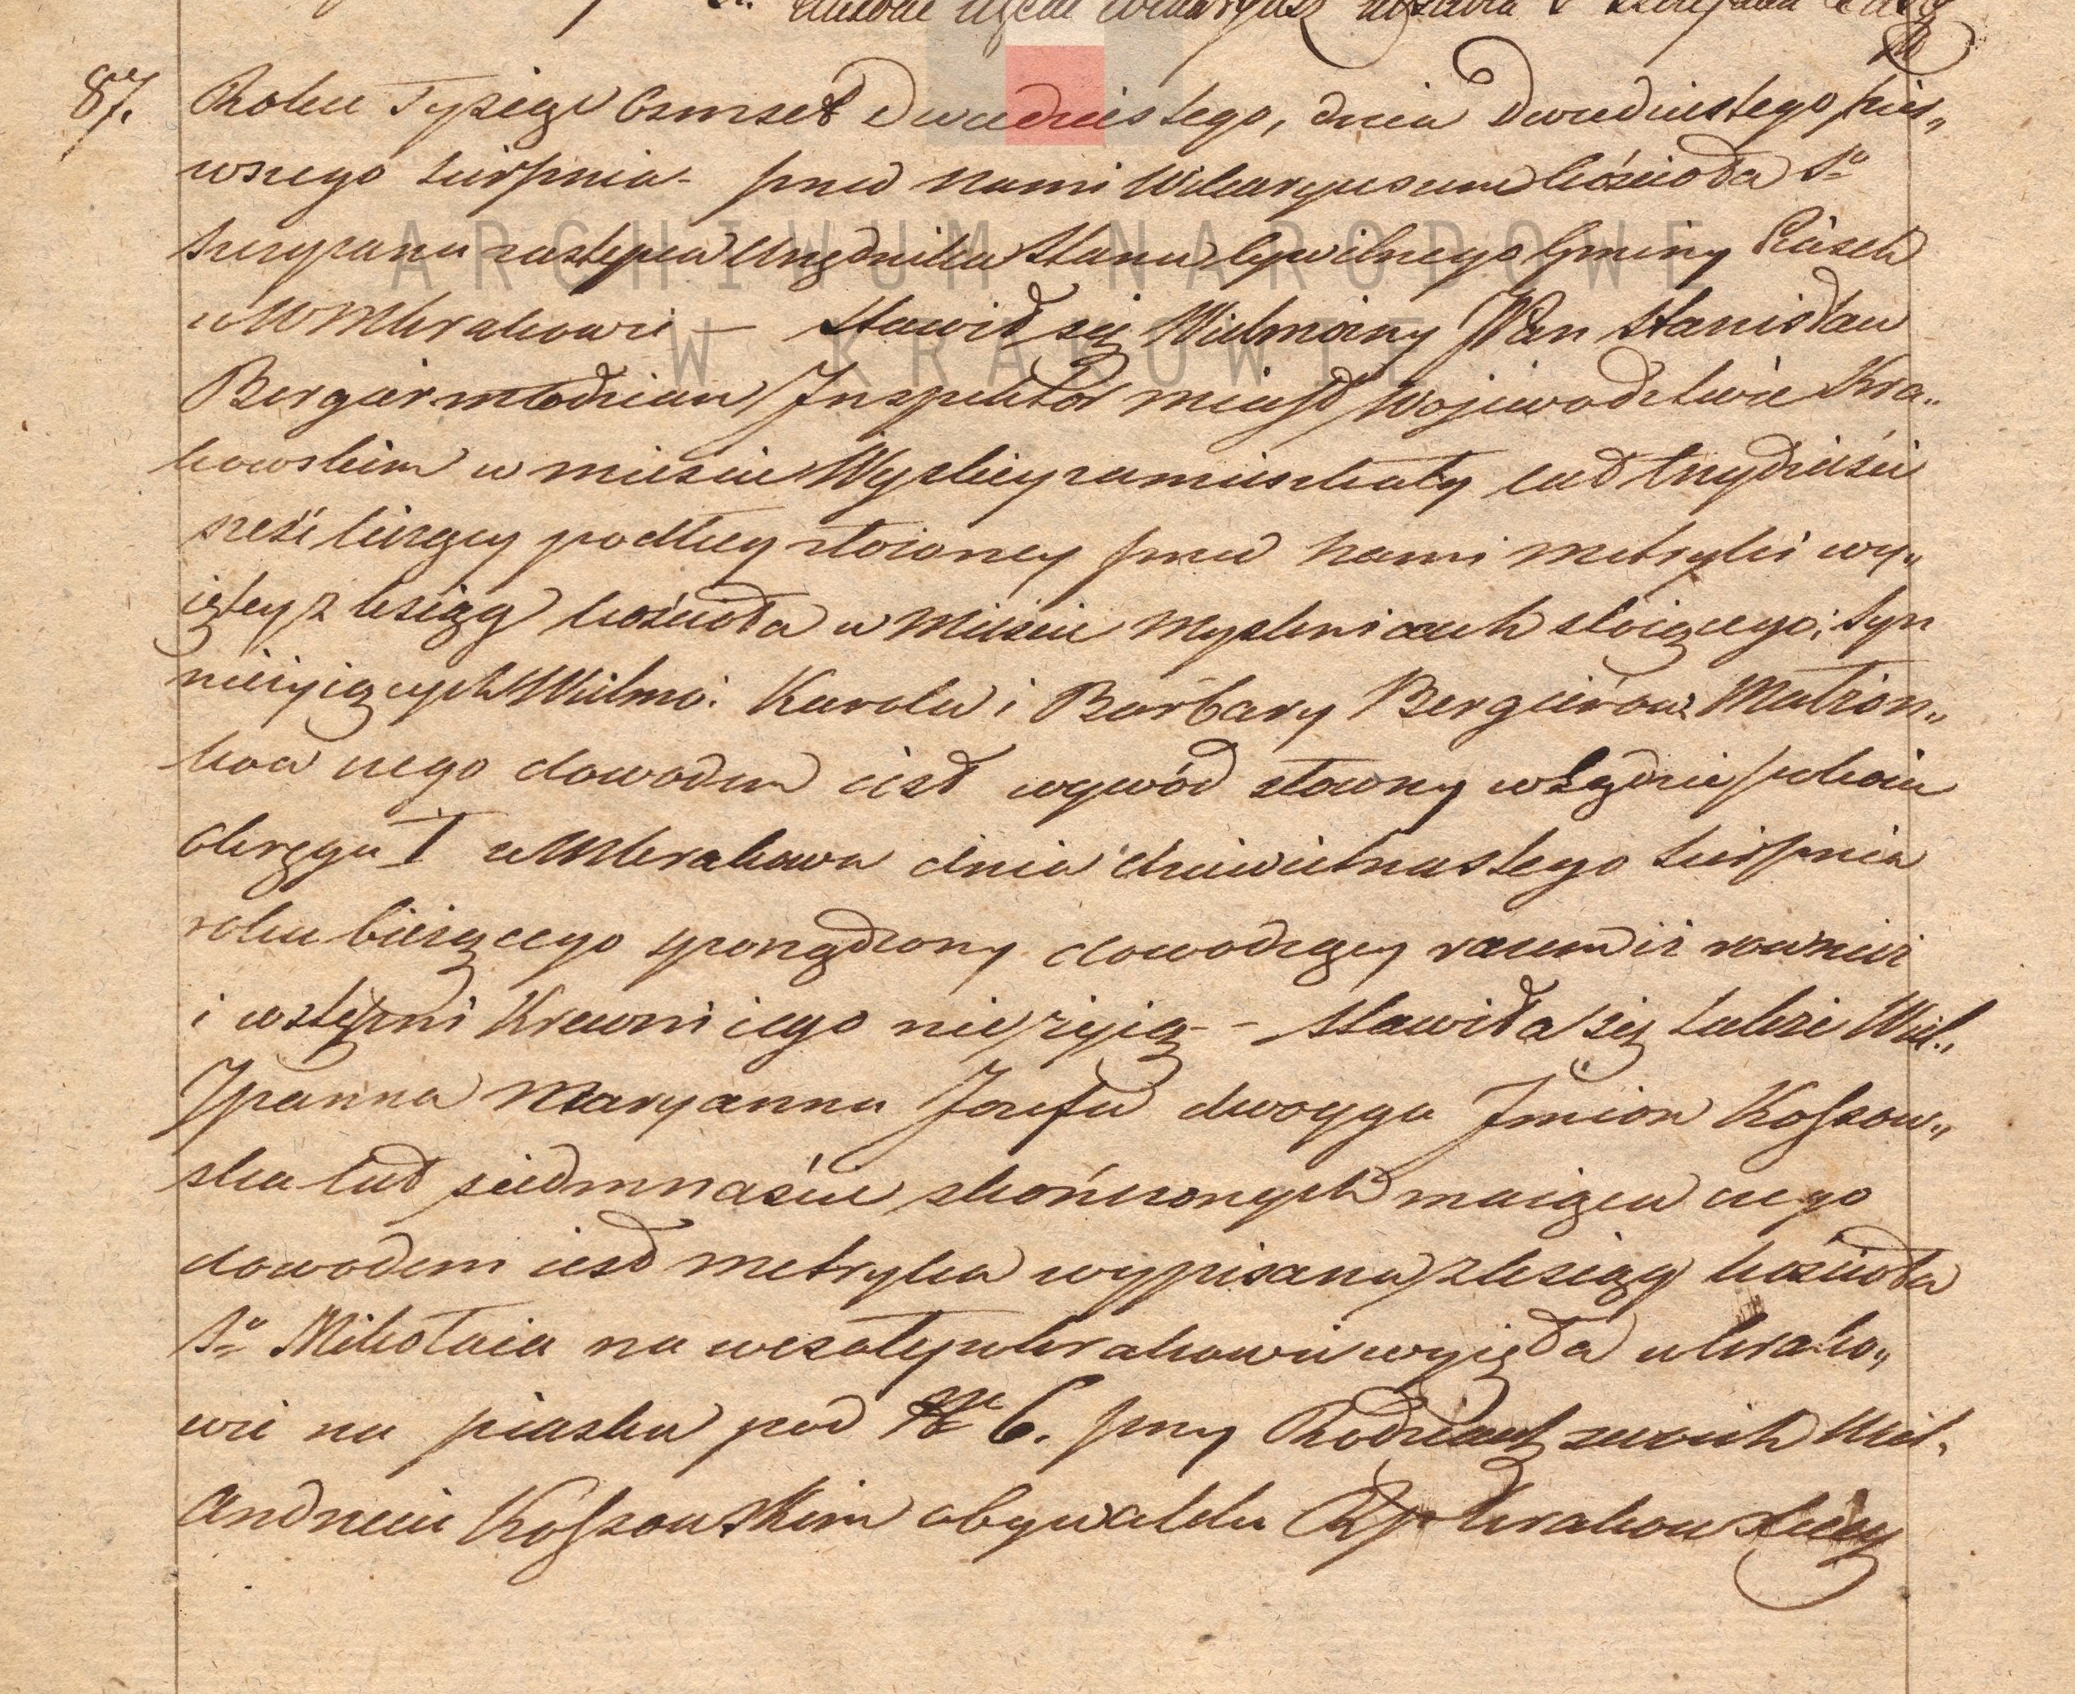 87.
Roku Tysiąc Osmset Dwudziestego, dnia Dwudziestego pier„
wszego Sierpnia - przed nami Wikaryuszem kościoła Sº
Szczepana zastępcą Urzędnika Stanu Cywilnego Gminy Piasek
w M Krakowie — stawił się Wielmożny JPan Stanisław
Bergier młodzian Inspektor miast Wojewodztwie Kra„
kowskim w mieście Wyslicy zamieszkały lat trzydzieści
sześć liczący podług złożoney przed nami metryki wy„
ięteỵ z ksiąg kościoła w Mieście Myslenicach stoiącego; syn
nieżyiących Wielmo: Karola i Barbary Bergierów Małżon„
ków czego dowodem iest wywód słowny w Sądzie pokoiu
Okręgu I w M Krakowa dnia dziewietnastego Sierpnia
roku bieżącego sporządzony dowodzący razem iż również
i wstępni Krewni iego nie żyią - - stawiła się także Wiel„
JPanna Maryanna Jozefa dwoyga Jmion Kossow„
ska lat siedmnaście skończonych maiąca czego
dowodem iest metryka wypisana z ksiąg kościoła
Sº Mikołaia na wesołey w krakowie wyięta w krako„
wie na piasku pod Nrº 6. przy Rodzicach swoich Wiel.
Andrzeiu Kossowskim obywatelu Rzp Krakowskiey
ARCHIWUM NARODOWE
W KRAKOWIE